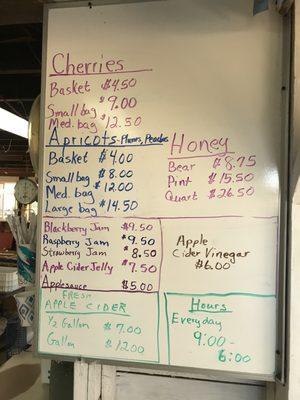 Cherries
Basket $4.50
Small bag $9.00
Med. bag $12.50
Apricots - Plums, Peaches
Basket $4.00
Small bag $8.00
Med bag $12.00
Large bag $14.50
Honey
Bear $8.75
Pint $15.50
Quart $26.50
Blackberry Jam $9.50
Raspberry Jam $9.50
Strawberry Jam $8.50
Apple Cider Jelly $7.50
Applesauce $5.00
Apple
Cider Vinegar
$6.00
FRESH
APPLE CIDER
1/2 Gallon $7.00
Gallon $12.00
Hours
Everyday
9:00-
6:00